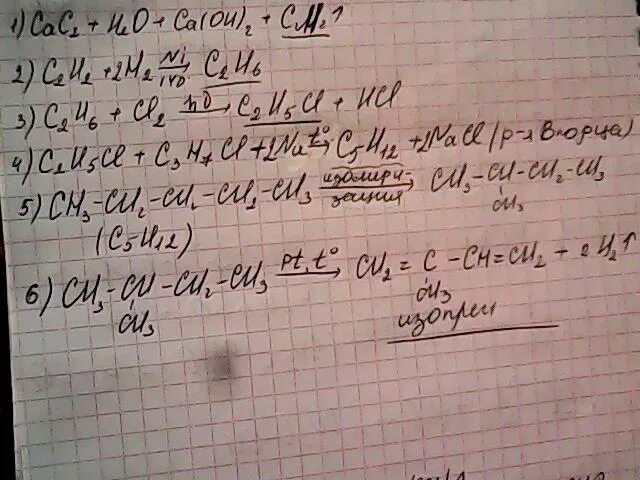 1) CaC₂ + H₂O → Ca(OH)₂ + C₂H₂↑
2) C₂H₂ + 2H₂ Ni 140 → C₂H₆
3) C₂H₆ + Cl₂ hν → C₂H₅Cl + HCl
4) C₂H₅Cl + C₃H₇Cl + 2Na t° → C₅H₁₂ + 2NaCl (р-я Вюрца)
5) CH₃-CH₂-CH₂-CH₂-CH₃ изомери- зация → CH₃-CH-CH₂-CH₃
(C₅H₁₂) CH₃
6) CH₃-CH-CH₂-CH₃ pt, t° → CH₂=C-CH=CH₂ + 2H₂↑
CH₃ CH₃
изопрен